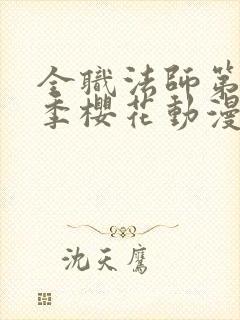 全職法師第
季櫻花動漫
沈天鷹